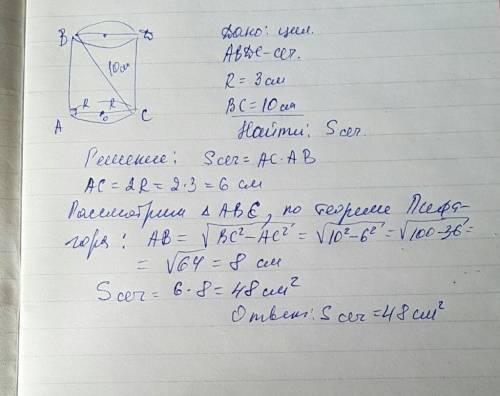 B D
Дано: цил.
ABDC-сеч.
10см
R = 3 см
R R
BC = 10 см
A o C
Найти: Sсеч.
Решение: Sсеч = AC · AB
AC = 2R = 2·3 = 6 см
Рассмотрим △ ABC, по теореме Пифа-
гора: AB = √BC²-AC² = √10²-6² = √100-36 =
= √64 = 8 см
Sсеч = 6·8 = 48 см²
Ответ: Sсеч = 48 см²